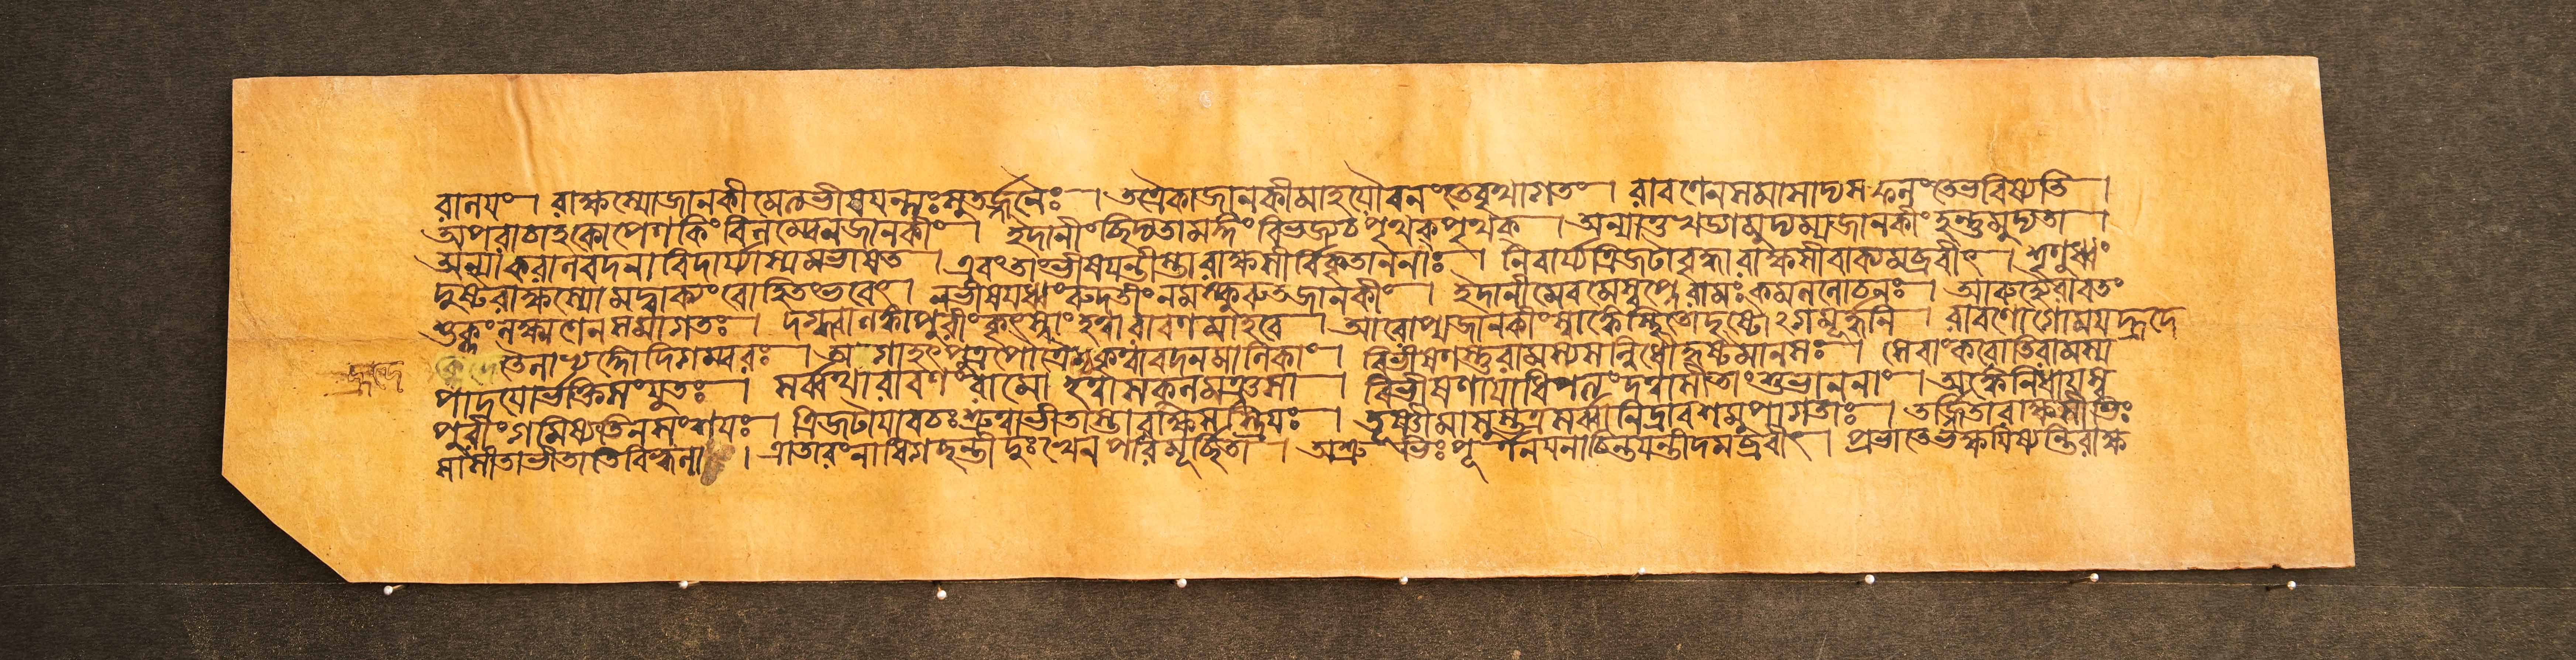 রালযং। রাক্ষস্যোজানকীমেত্যভীষযন্ত্যঃসুতর্জ্জনৈঃ। তত্রৈকাজানকীমাহযৌবনংতেবৃথাগতং। রাবণেনসমাসাদ্যসফলংতেভবিষ্যতি।
অপরাচাহকোপেণকিংবিলম্বেনজানকীং। ইদানীংছিদ্যতামঙ্গংবিভজ্যচপৃথক্পৃথক্। অন্যাতুখড্গমুদ্যম্যজানকীংহন্তুমুদ্যতা।
অন্যাকরালবদনাবিদার্য্যাস্যমভাষত। এবংতাংভীষযন্তীস্তারাক্ষসীর্বিকৃতাননাঃ। নিবার্য্যত্রিজটাবৃদ্ধারাক্ষসীবাক্যমব্রবীৎ। শৃণুধ্বং
দুষ্টরাক্ষস্যোমদ্বাক্যংবোহিতংভবেৎ। নভীষযধ্বংরুদতীংনমস্কুরুতজানকীং। ইদানীমেবমেস্বপ্নেরামঃকমললোচনঃ। আরুহ্যৈরাবতং
শুক্লংলক্ষ্মণেনসমাগতঃ। দগ্ধ্বালঙ্কাপুরীংকৃৎস্নাংহত্বারাবণমাহবে। আরোপ্যজানকীংস্বাঙ্কেস্থিতোদৃষ্টোঽগমূর্দ্ধনি। রাবণোগোমযহ্রদে
তৈলাভ্যক্তোদিগম্বরঃ। অগাহৎপুত্রপৌত্রৈশ্চকৃত্বাবদনমালিকাং। বিভীষণস্তুরামস্যসন্নিধৌহৃষ্টমানসঃ। সেবাংকরোতিরামস্য
পাদযোর্ভক্তিসংযুতঃ। সর্ব্বথারাবণংরামোহত্বাসকুলমঞ্জসা। বিভীষণাযাধিপত্যংদত্বাসীতাংশুভাননাং। অঙ্কেনিধাযস্ব
পুরীংগমিষ্যতিনসংশযঃ। ত্রিজটাযাবচঃশ্রুত্বাভীতাস্তারাক্ষসস্ত্রিযঃ। তূষ্ণীমাসুস্তত্রসর্ব্বানিদ্রাবশমুপাগতাঃ। তর্জ্জিতারাক্ষসীভিঃ
সাসীতাভীতাতিবিহ্বলা। ত্রাতারংনাধিগচ্ছন্তীদুঃখেনপরিমূর্চ্ছিতা। অশ্রুভিঃপূর্ণনযনাচিন্তযন্তীদমব্রবীৎ। প্রভাতেভক্ষযিষ্যন্তিরাক্ষ